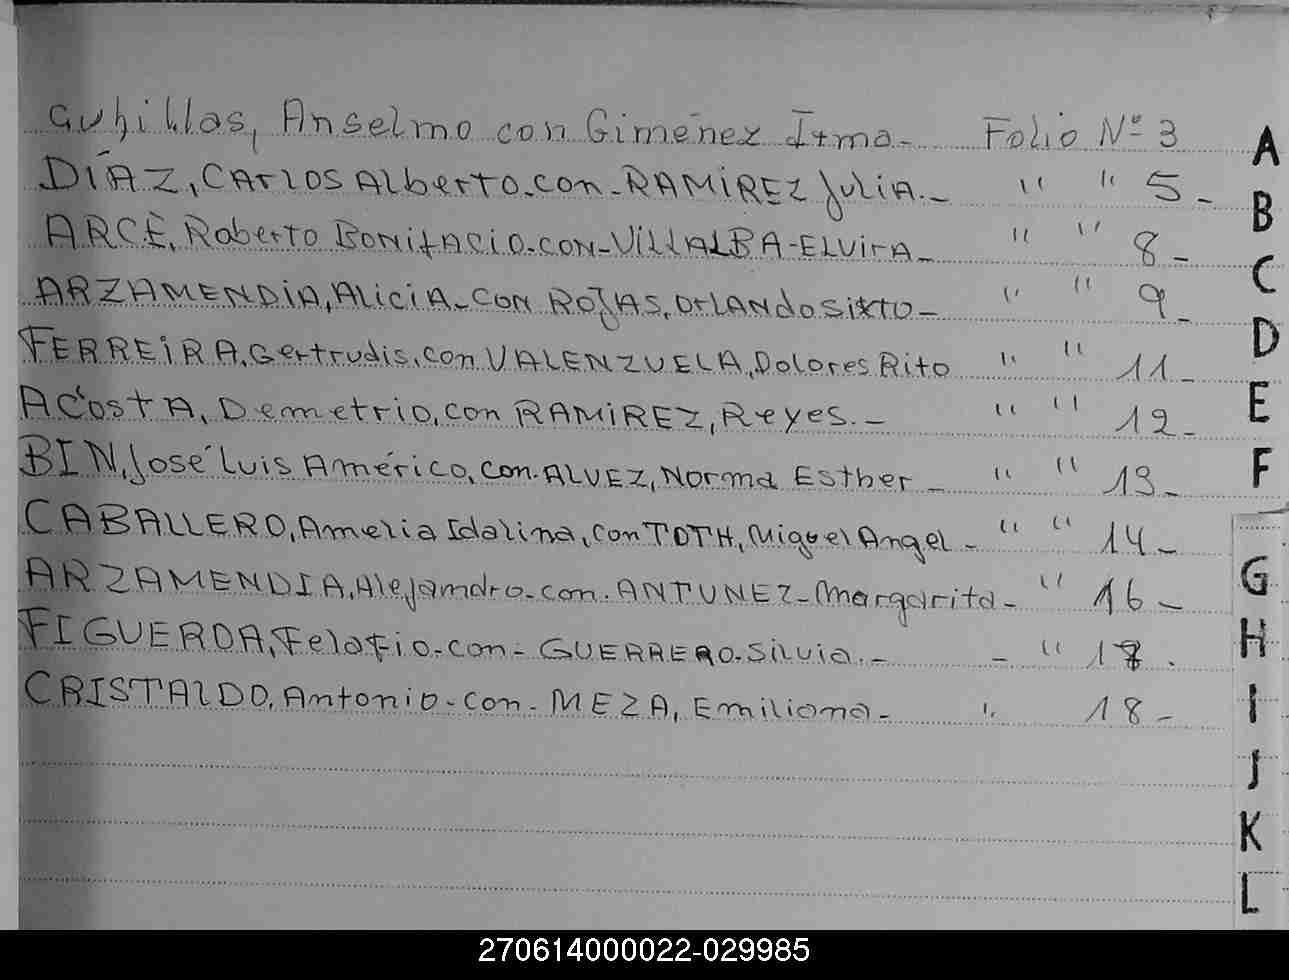 Cubillas, Anselmo con Gimenez Irma- Folio Nº 3
DÍAZ, CArlOS Alberto-con-RAMiREZ JuliA.- " " 5-
ARCE, Roberto BONifACiO-CON-VillALBA-ELVirA- " " 8-
ARZAMENDiA, AliCiA-CON ROJAS, OrLANdo Sixto- " " 9-
FERREiRA, Gertrudis, con VALENZUELA, Dolores Rito " " 11-
ACostA, Demetrio, con RAMiREZ, Reyes.- " " 12-
BIN, José Luis Américo, con ALVEZ, Norma Esther- " " 13-
CABALLERO, Amelia Idalina, con TOTH, Miguel Angel- " " 14-
ARZAMENDIA, Alejandro-con-ANTUNEZ-Margarita- " 16-
FIGUEROA, -con-GUERRERO-Silvia.- - " .
CRISTALDO, Antonio-con-MEZA, Emiliana- " 18-
A
B
C
D
E
F
G
H
I
J
K
L
270614000022-029985